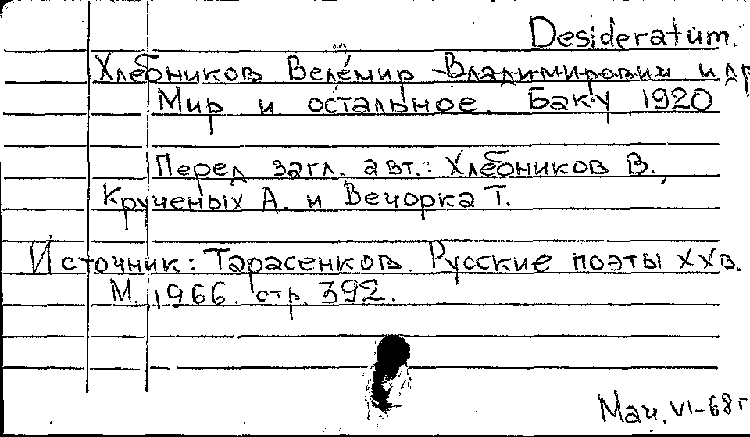 Desideratum.
Хлебников Велемир Владимирович и др
Мир и остальное. Баку 1920
Перед загл. авт.: Хлебников В.,
Крученых А. и Вечорка Т.
Источник: Тарасенков. Русские поэты XXв.
М. 1966. стр. 392.
Мач. VI-68 г